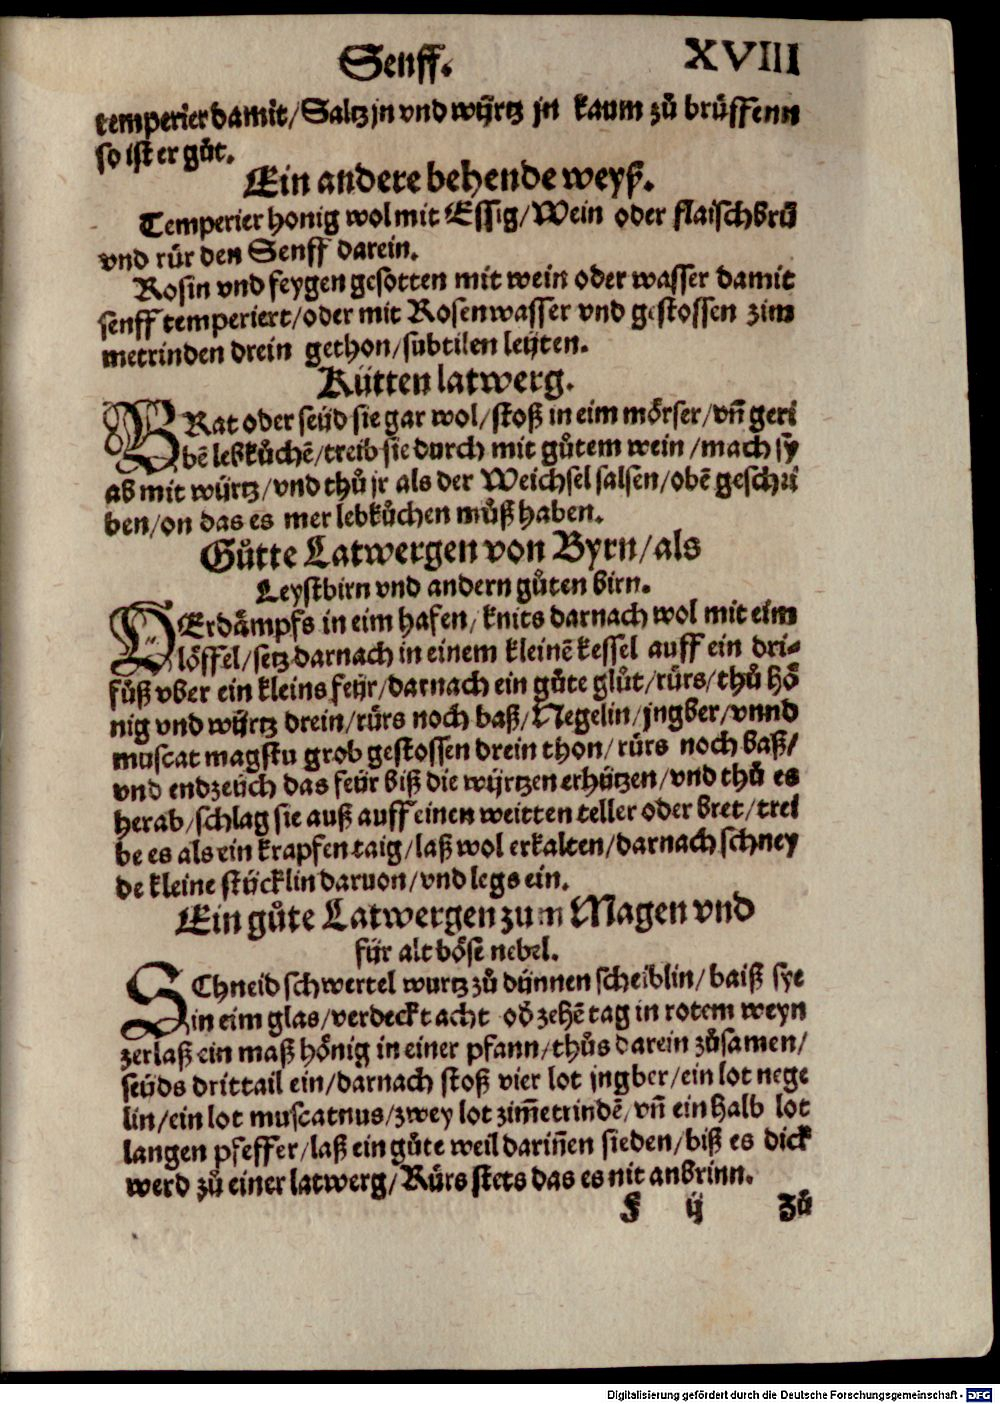 Senff. XVIII
temperier damit/Saltz jn vnd wÿrtz jn kaum zů brüffenn
so ist er gůt.
Ein andere behende weyß.
Temperier honig wol mit Essig/Wein oder flaischbrü
vnd rür den Senff darein.
Rosin vnd feygen gesotten mit wein oder wasser damit
senff temperiert/oder mit Rosenwasser vnd gestossen zim
metrinden drein gethon/subtilen leÿten.
Kütten latwerg.
BRat oder seüd sie gar wol/stoß in eim mörser/vñ geri
bẽ lebkůchẽ/treib sie durch mit gůtem wein/mach sy
ab mit würtz/vnd thů jr als der Weichsel salsen/obẽ geschri
ben/on das es mer lebkůchen můß haben.
Gůtte Latwergen von Byrn/als
Leystbirn vnd andern gůten birn.
VErdämpfs in eim hafen/knits darnach wol mit eim
löffel/setz darnach in einem kleinẽ kessel auff ein dri-
fůß vber ein kleins feÿr/darnach ein gůte glůt/rürs/thů hö
nig vnd wÿrtz drein/rürs noch baß/Negelin/jngber/vnnd
muscat magstu grob gestossen drein thon/rürs noch baß/
vnd endzeüch das feür biß die wÿrtzen erhützen/vnd thů es
herab/schlag sie auß auff einen weitten teller oder bret/trei
be es als ein krapfen taig/laß wol erkalten/darnach schney
de kleine stücklin daruon/vnd legs ein.
Ein gůte Latwergen zum Magen vnd
für alt böse nebel.
SChneid schwertel wurtz zů dünnen scheiblin/baiß sye
in eim glas/verdeckt acht oď zehẽ tag in rotem weyn
zerlaß ein maß hönig in einer pfann/thůs darein zůsamen/
seüds drittail ein/darnach stoß vier lot jngber/ein lot nege
lin/ein lot muscatnus/zwey lot zim̃etrindẽ/vñ ein halb lot
langen pfeffer/laß ein gůte weil dariñen sieden/biß es dick
werd zů einer latwerg/Rürs stets das es nit anbrinn.
f ij zů
Digitalisierung gefördert durch die Deutsche Forschungsgemeinschaft - DFG